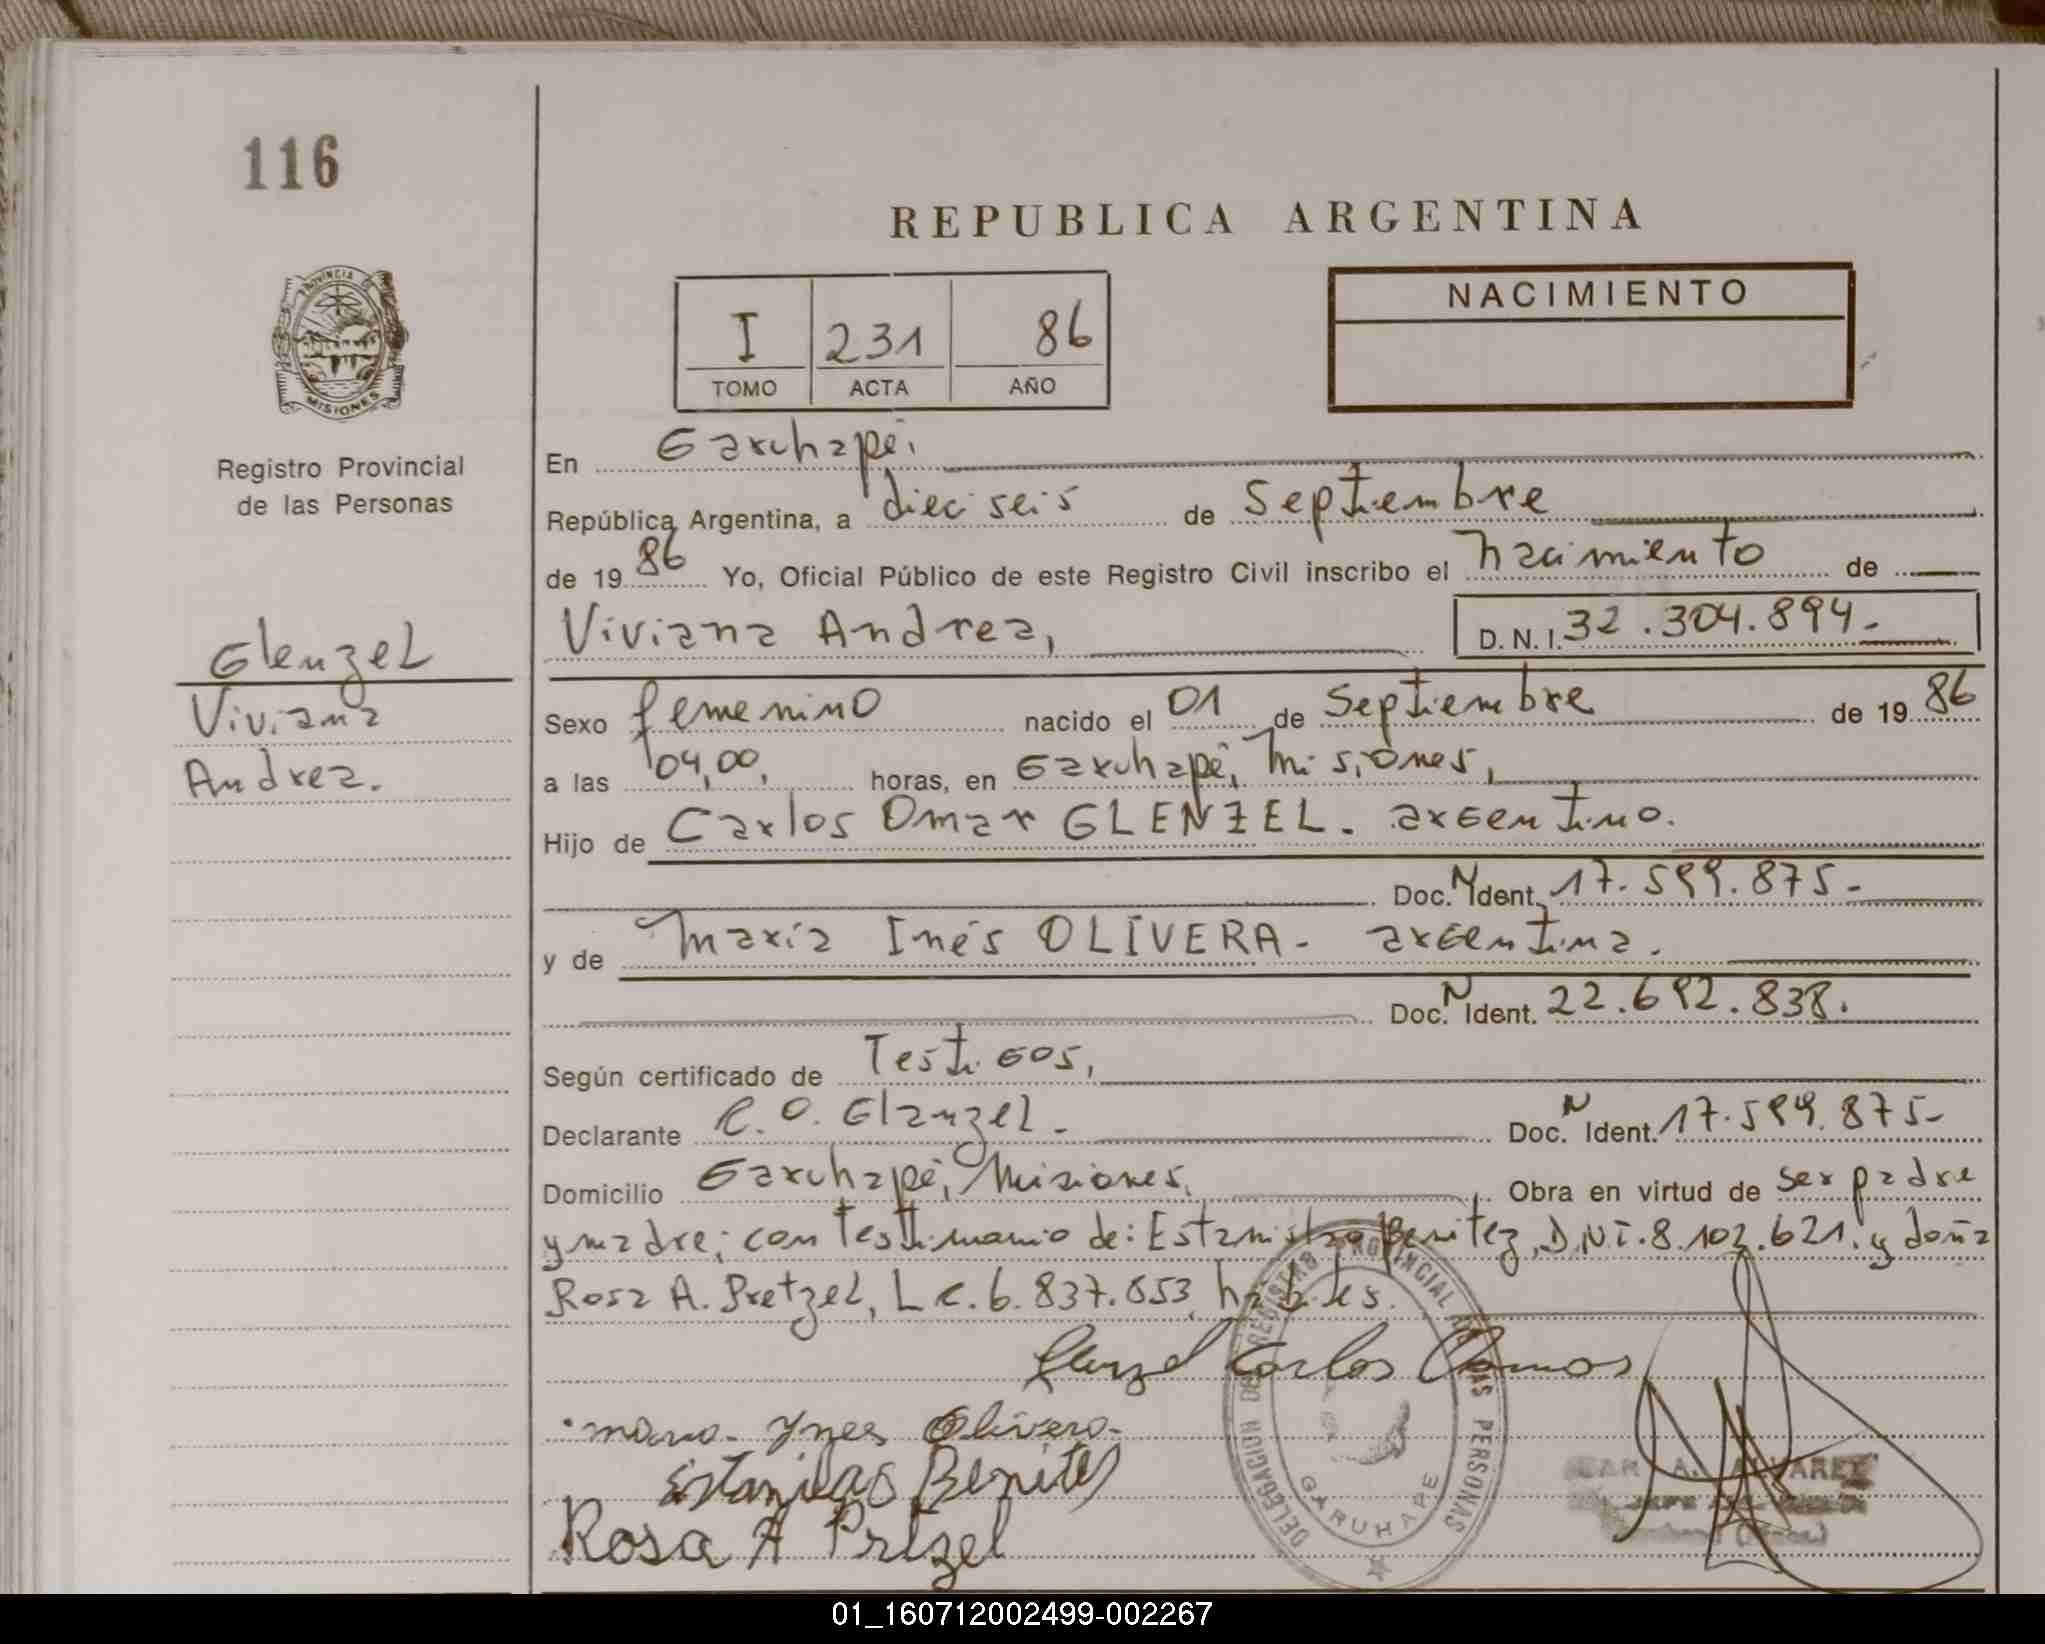 116
REPUBLICA ARGENTINA
PROVINCIA DE
MISIONES
I 231 86
TOMO ACTA AÑO
NACIMIENTO
Registro Provincial
de las Personas
En Garuhapé,
República Argentina, a dieciseis de Septiembre
de 1986 Yo, Oficial Público de este Registro Civil inscribo el nacimiento de
Viviana Andrea, D. N. I. 32.304.894-
Glenzel
Viviana
Andrea.
Sexo femenino nacido el 01 de Septiembre de 1986
a las 04,00, horas, en Garuhapé, Misiones,
Hijo de Carlos Omar GLENZEL. argentino.
Doc. N Ident. 17.599.875-
y de María Inés OLIVERA- argentina.
Doc. N Ident. 22.692.838.
Según certificado de Testigos,
Declarante C. O. Glanzel- Doc. N Ident. 17.599.875-
Domicilio Garuhapé, Misiones, Obra en virtud de ser padre
y madre; con testimonio de: Estanislao Benitez, D.N.I. 8.102.621. y doña
Rosa A. Pretzel, L.C. 6.837.653, hábiles.
Glenzel Carlos Omar
maria Ynes Olivera
Estanislao Benites
Rosa A Pretzel
DELEGACION DEL REGISTRO PROVINCIAL DE LAS PERSONAS
GARUHAPE
A. ALVAREZ
01_160712002499-002267